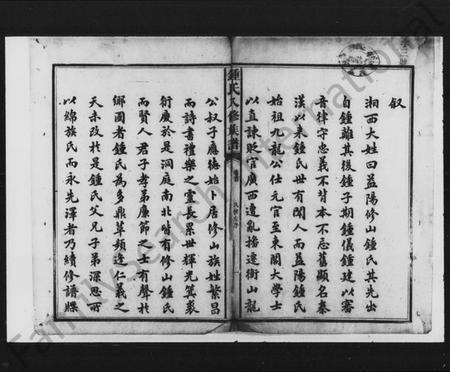 叙
湘西大姓曰益陽修山鍾氏其先出
自鍾離其後鍾子期鍾儀鍾建以審
音律守忠義不背本不忘舊顯名秦
漢以來鍾氏世有聞人而益陽鍾氏
始祖九龍公仕元官至東閣大學士
以直諫貶官廣西遭亂播遷衡山龍
鍾氏八修族譜
公叔子應德始卜居修山族姓繁昌
而詩書禮樂之靈長累世輝光箕裘
衍廣於是洞庭南北皆有修山鍾氏
而賢人君子孝弟廉節之士有聲於
鄉國者鍾氏為多鼎革頻逢仁義之
天未改於是鍾氏父兄子弟深思所
以綿族氏而永先澤者乃續修譜牒